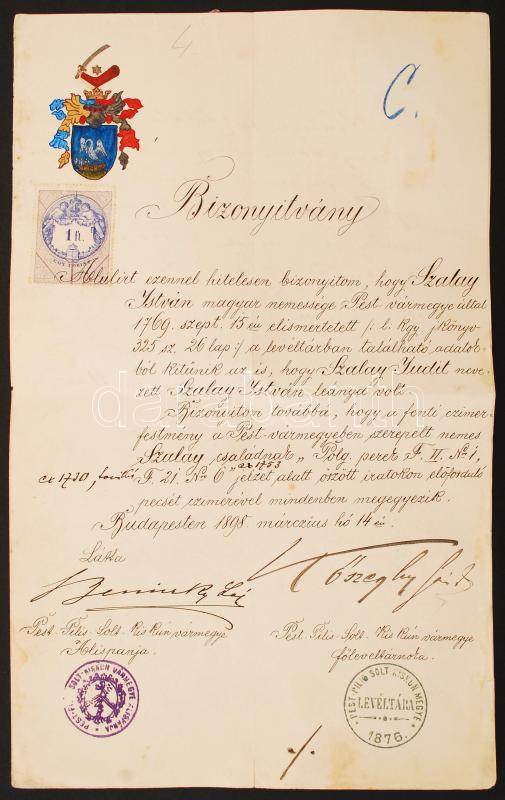 4
C.
Bizonyitvány
1 ft.
Alulirt ezennel hitelesen bizonyitom, hogy Szalay
István magyar nemessége Pest vármegye által
1769. szept. 15 én elismertetett /: l. kgy. jkönyv
325 sz. 26 lap :/ a levéltárban található adatok-
ból kitünik az is, hogy Szalay Judit neve-
zett Szalay István leánya volt.
Bizonyitom továbbá, hogy a fenti czimer-
festmény a Pest-vármegyében szerepelt nemes
Szalay családnak „Polg. perek F. II. No 1,
ex 1730, F 21. No 6" ex 1753 jelzet alatt őrzött iratokon előforduló
pecsét czimerével mindenben megegyezik.
Budapesten 1898. márczius hó 14 én.
Látta
Pest-Pilis-Solt-Kis kún vármegye
Alispánja.
Pest-Pilis-Solt-Kis kún vármegye
főlevéltárnoka.
PEST-PILIS SOLT KISKUN MEGYE
LEVÉLTÁRA
1876.